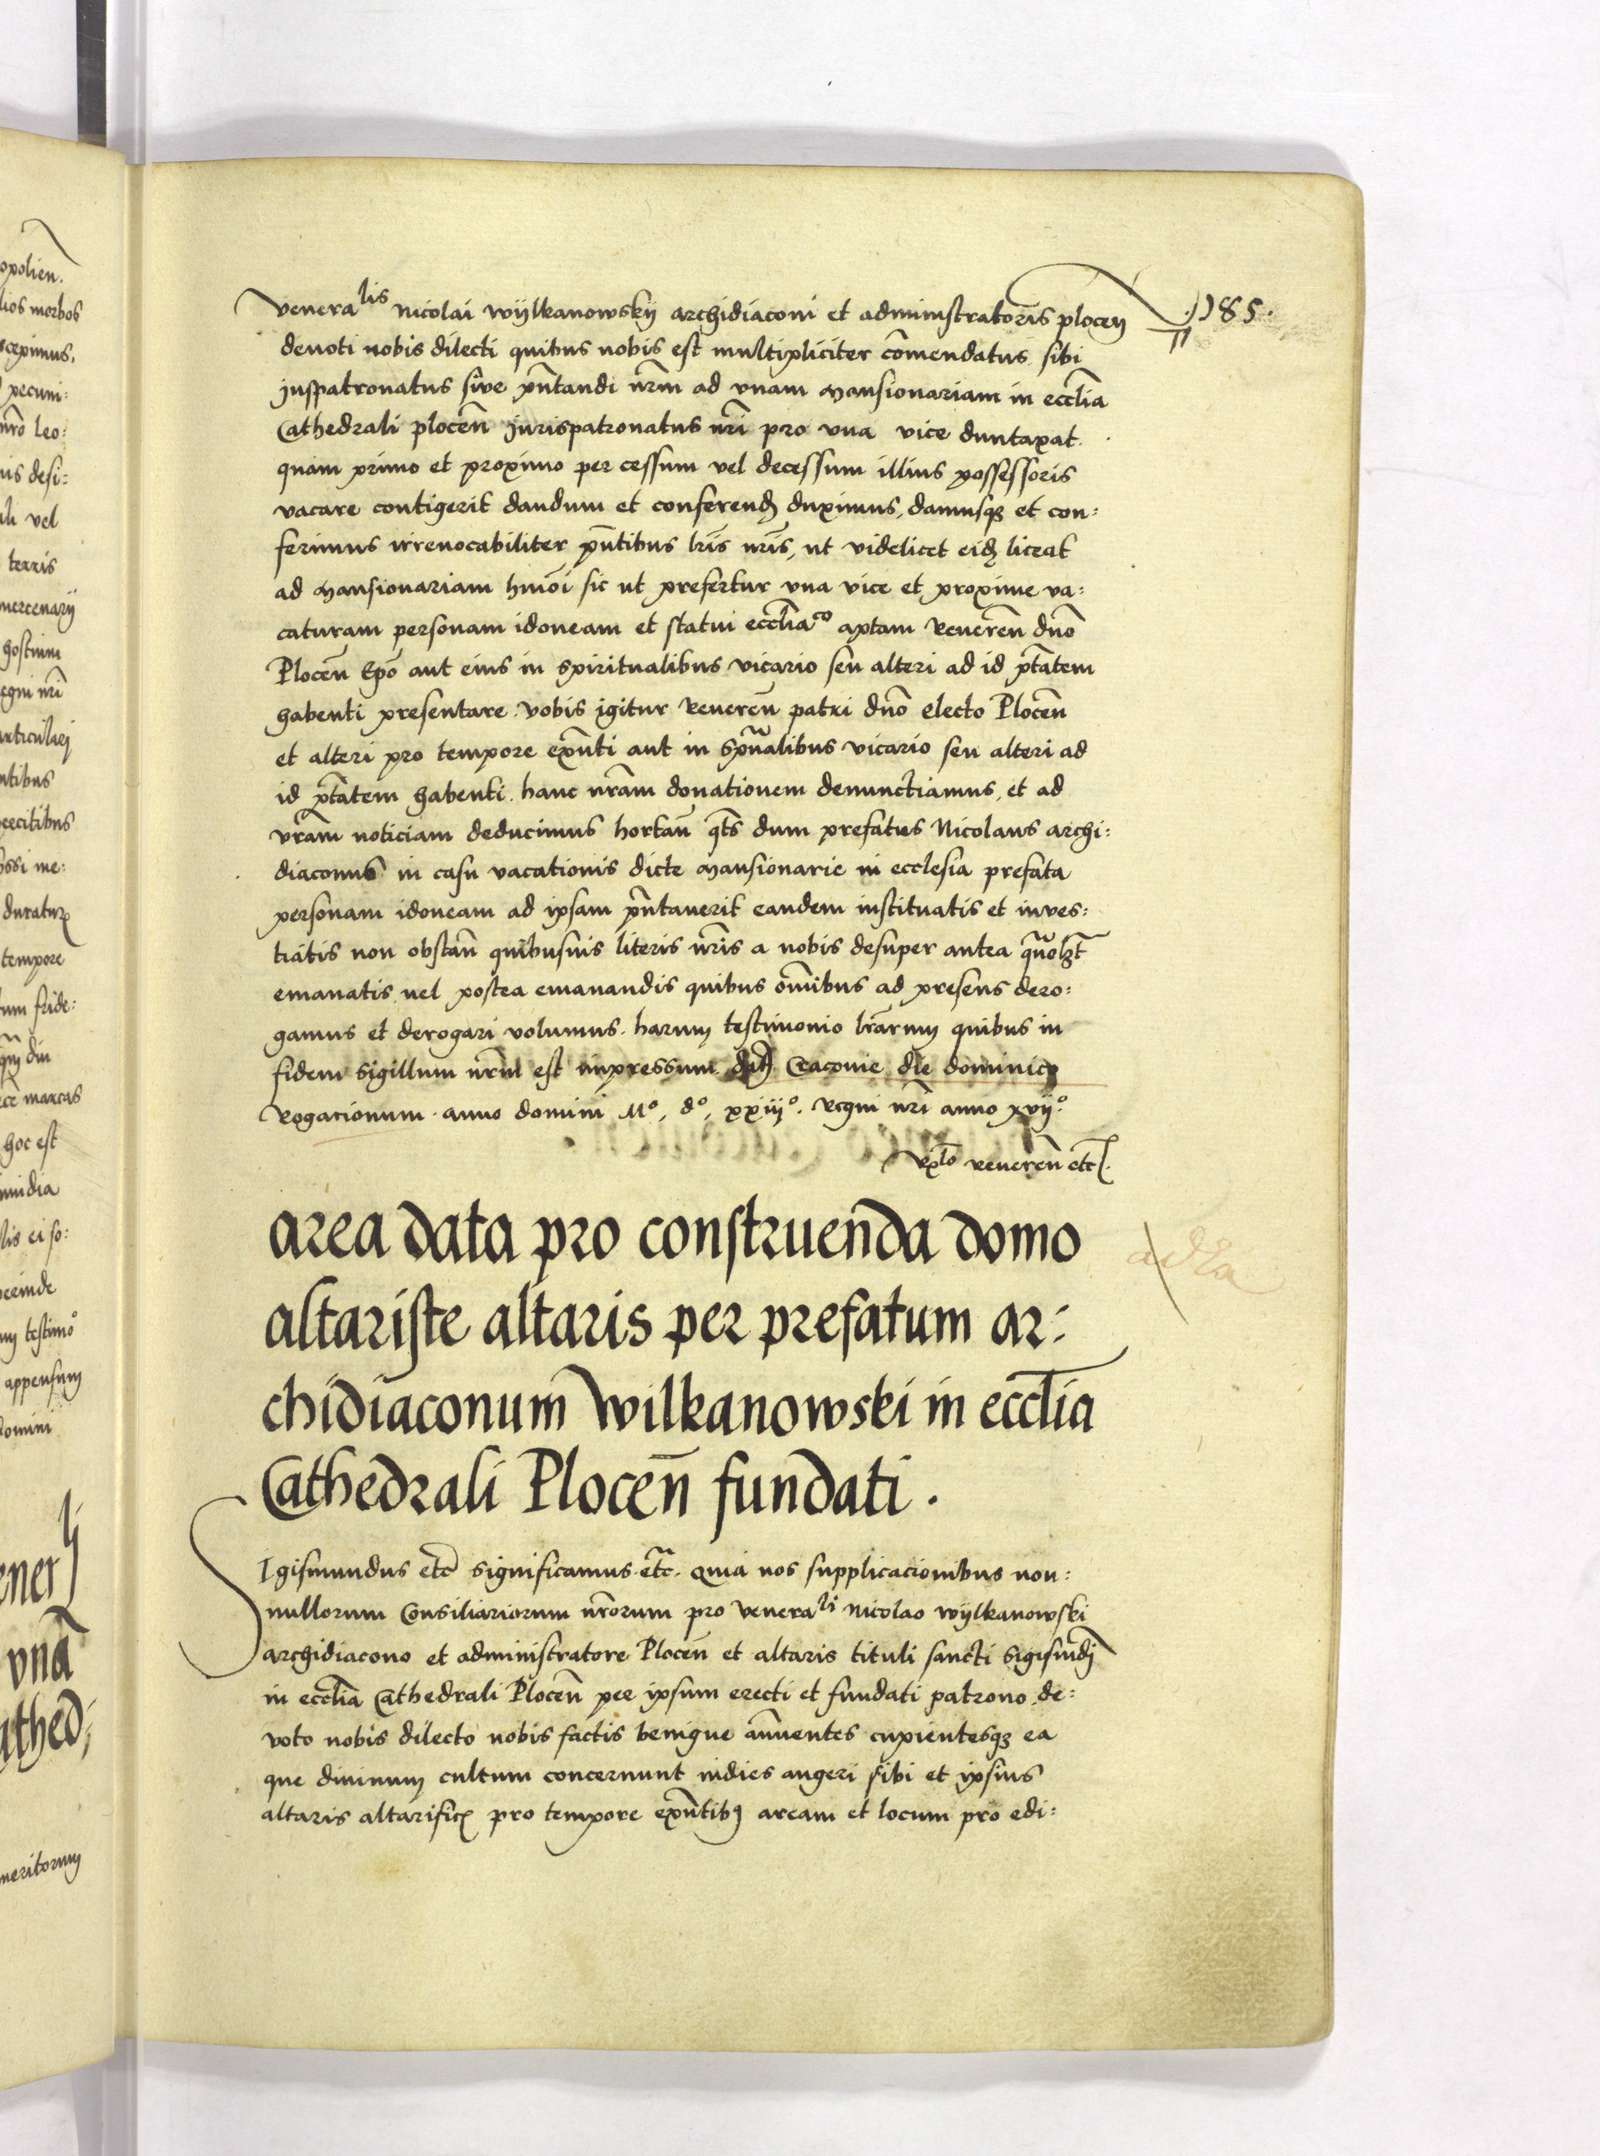 .)185.
veneralis nicolai wÿlkanowskÿ archidiaconi et administratoris plocen̄
deuoti nobis dilecti quibus nobis est multipliciter cōmendatus sibi
juspatronatus siue pn̄tandi nr̄m ad vnam mansionariam in eccl̄ia
Cathedrali plocen̄ jurispatronatus nr̄i pro vna vice duntaxat.
quam primo et proximo per cessum vel decessum illius possessoris
vacare contigerit dandum et conferend duximus, damusqȝ et con:
ferimus irreuocabiliter pn̄tibus lr̄is nr̄is, ut videlicet eid liceat
ad mansionariam hmōi sic ut prefertur vna vice et proxime va:
caturam personam idoneam et statui eccl̄iaco aptam Reueren̄ dn̄o
Plocen̄ Ep̄o aut eius in spiritualibus vicario seu alteri ad id pt̄atem
habenti presentare. vobis igitur Reueren̄ patri dn̄o electo Plocen̄
et alteri pro tempore exn̄ti aut in sp̄ualibus vicario seu alteri ad
id pt̄atem habenti. hanc nr̄am donationem denunctiamus, et ad
vr̄am noticiam deducimus hortan̄ qt̄s dum prefatus Nicolaus archi:
diaconus in casu vacationis dicte mansionarie in ecclesia prefata
personam idoneam ad ipsam pn̄tauerit eandem instituatis et inues:
tiatis non obstan̄ quibusuis literis nr̄is a nobis desuper antea quōlȝt
emanatis, vel postea emanandis quibus om̄ibus ad presens dero:
gamus et derogari volumus. harum testimonio lr̄arum quibus in
fidem sigillum nr̄m est impressum. dat Cracouie die dominico
Rogacionum. anno domini Mº, dº, xxiijº. Regni nr̄i anno xvijº.
Rx̄lo reueren̄ etc.
area data pro construenda domo
altariste altaris per prefatum ar:
chidiaconum wilkanowski in eccl̄ia
Cathedrali Plocen̄ fundati.
SIgismundus etc̄ significamus. etc̄. quia nos supplicacionibus non:
nullorum Consiliariorum nr̄orum pro venerali nicolao wÿlkanowski
archidiacono et administratore Plocen̄ et altaris tituli sancti Sigismūdi
in eccl̄ia Cathedrali Plocen̄ per ipsum erecti et fundati patrono, de:
uoto nobis dilecto nobis factis benigne annuentes cupientesqȝ ea
que diuinum cultum concernunt indies augeri sibi et ipsius
altaris altaristis pro tempore exn̄tibꝰ aream et locum pro edi: